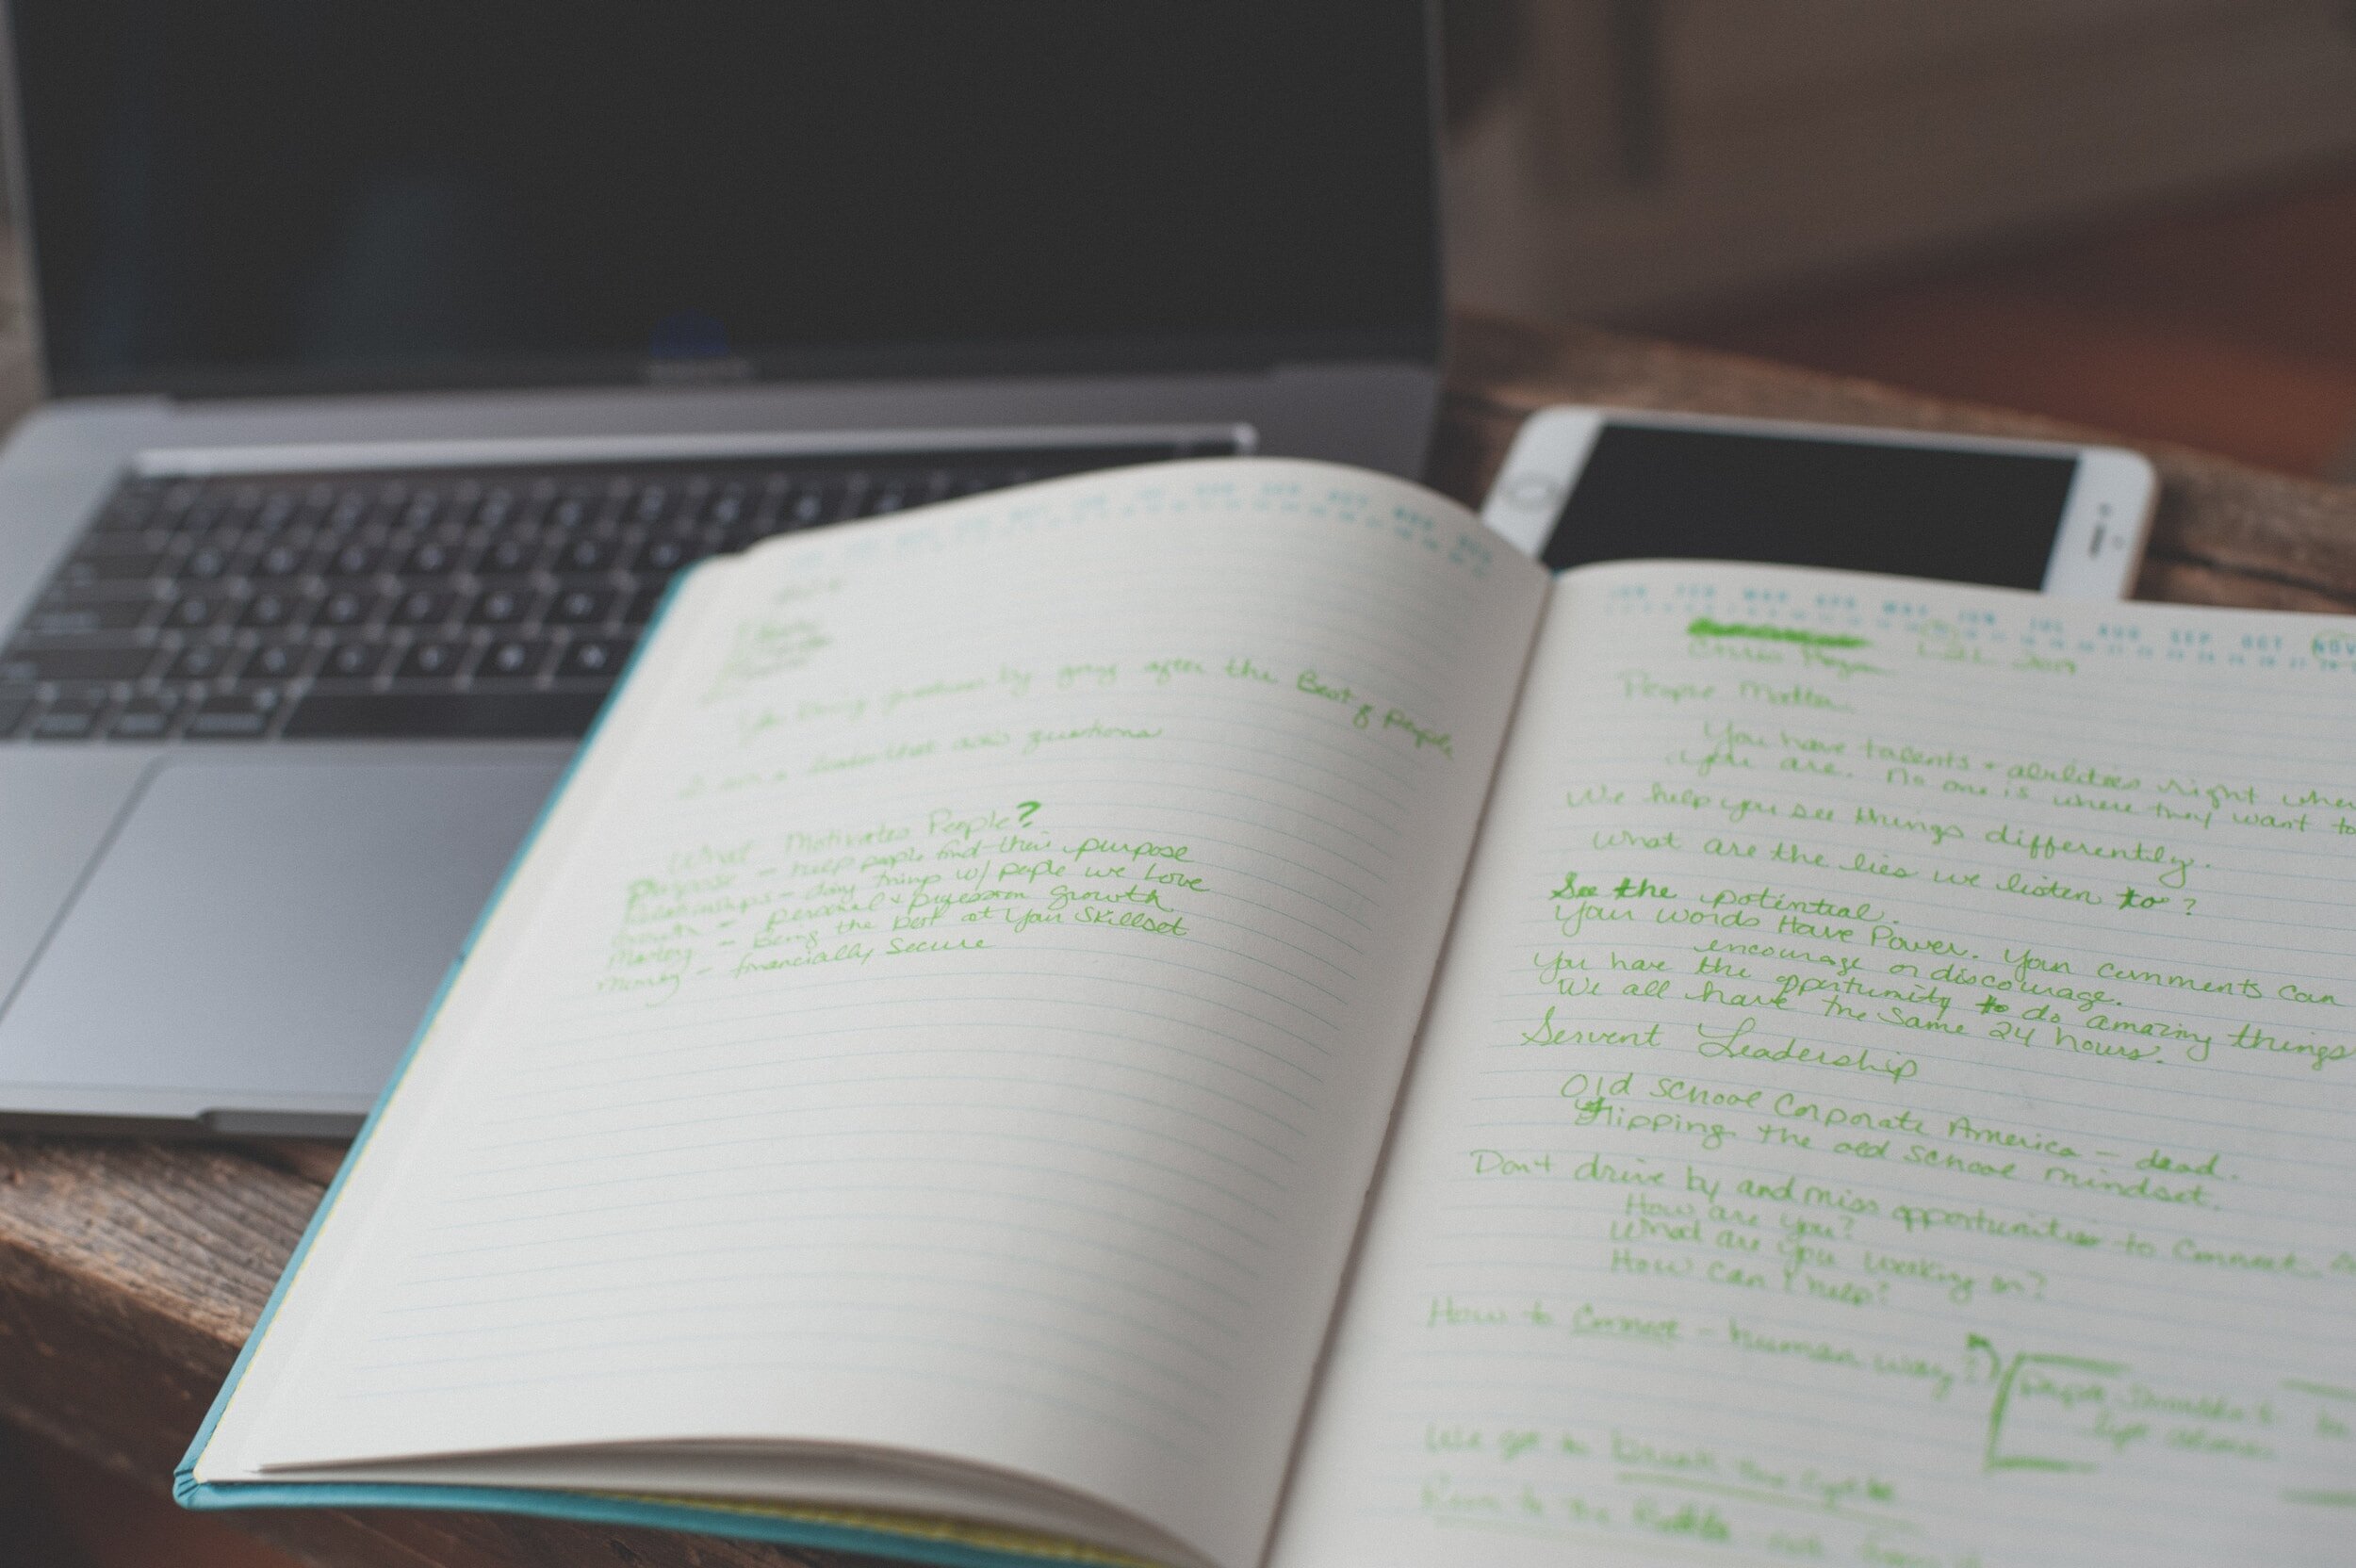 by going after the Best of People
a leader that asks questions
What Motivates People?
Purpose - help people find their purpose
Relationships - doing things w/ people we Love
Growth - personal & profession growth
Mastery - Being the best at your Skillset
Money - financially Secure
JAN FEB MAR APR MAY JUN JUL AUG SEP OCT NOV
2019
People Matter
You have talents + abilities right where
you are. No one is where they want to
We help you see things differently.
What are the lies we listen to?
See the potential.
Your words Have Power. Your comments can
encourage or discourage.
You have the opportunity to do amazing things
We all have the same 24 hours.
Servent Leadership
Old School Corporate America - dead.
Flipping the old school mindset.
Don't drive by and miss opportunities to Connect.
How are you?
What are you working on?
How can I help?
How to Connect - human way?
We get to break the cycle